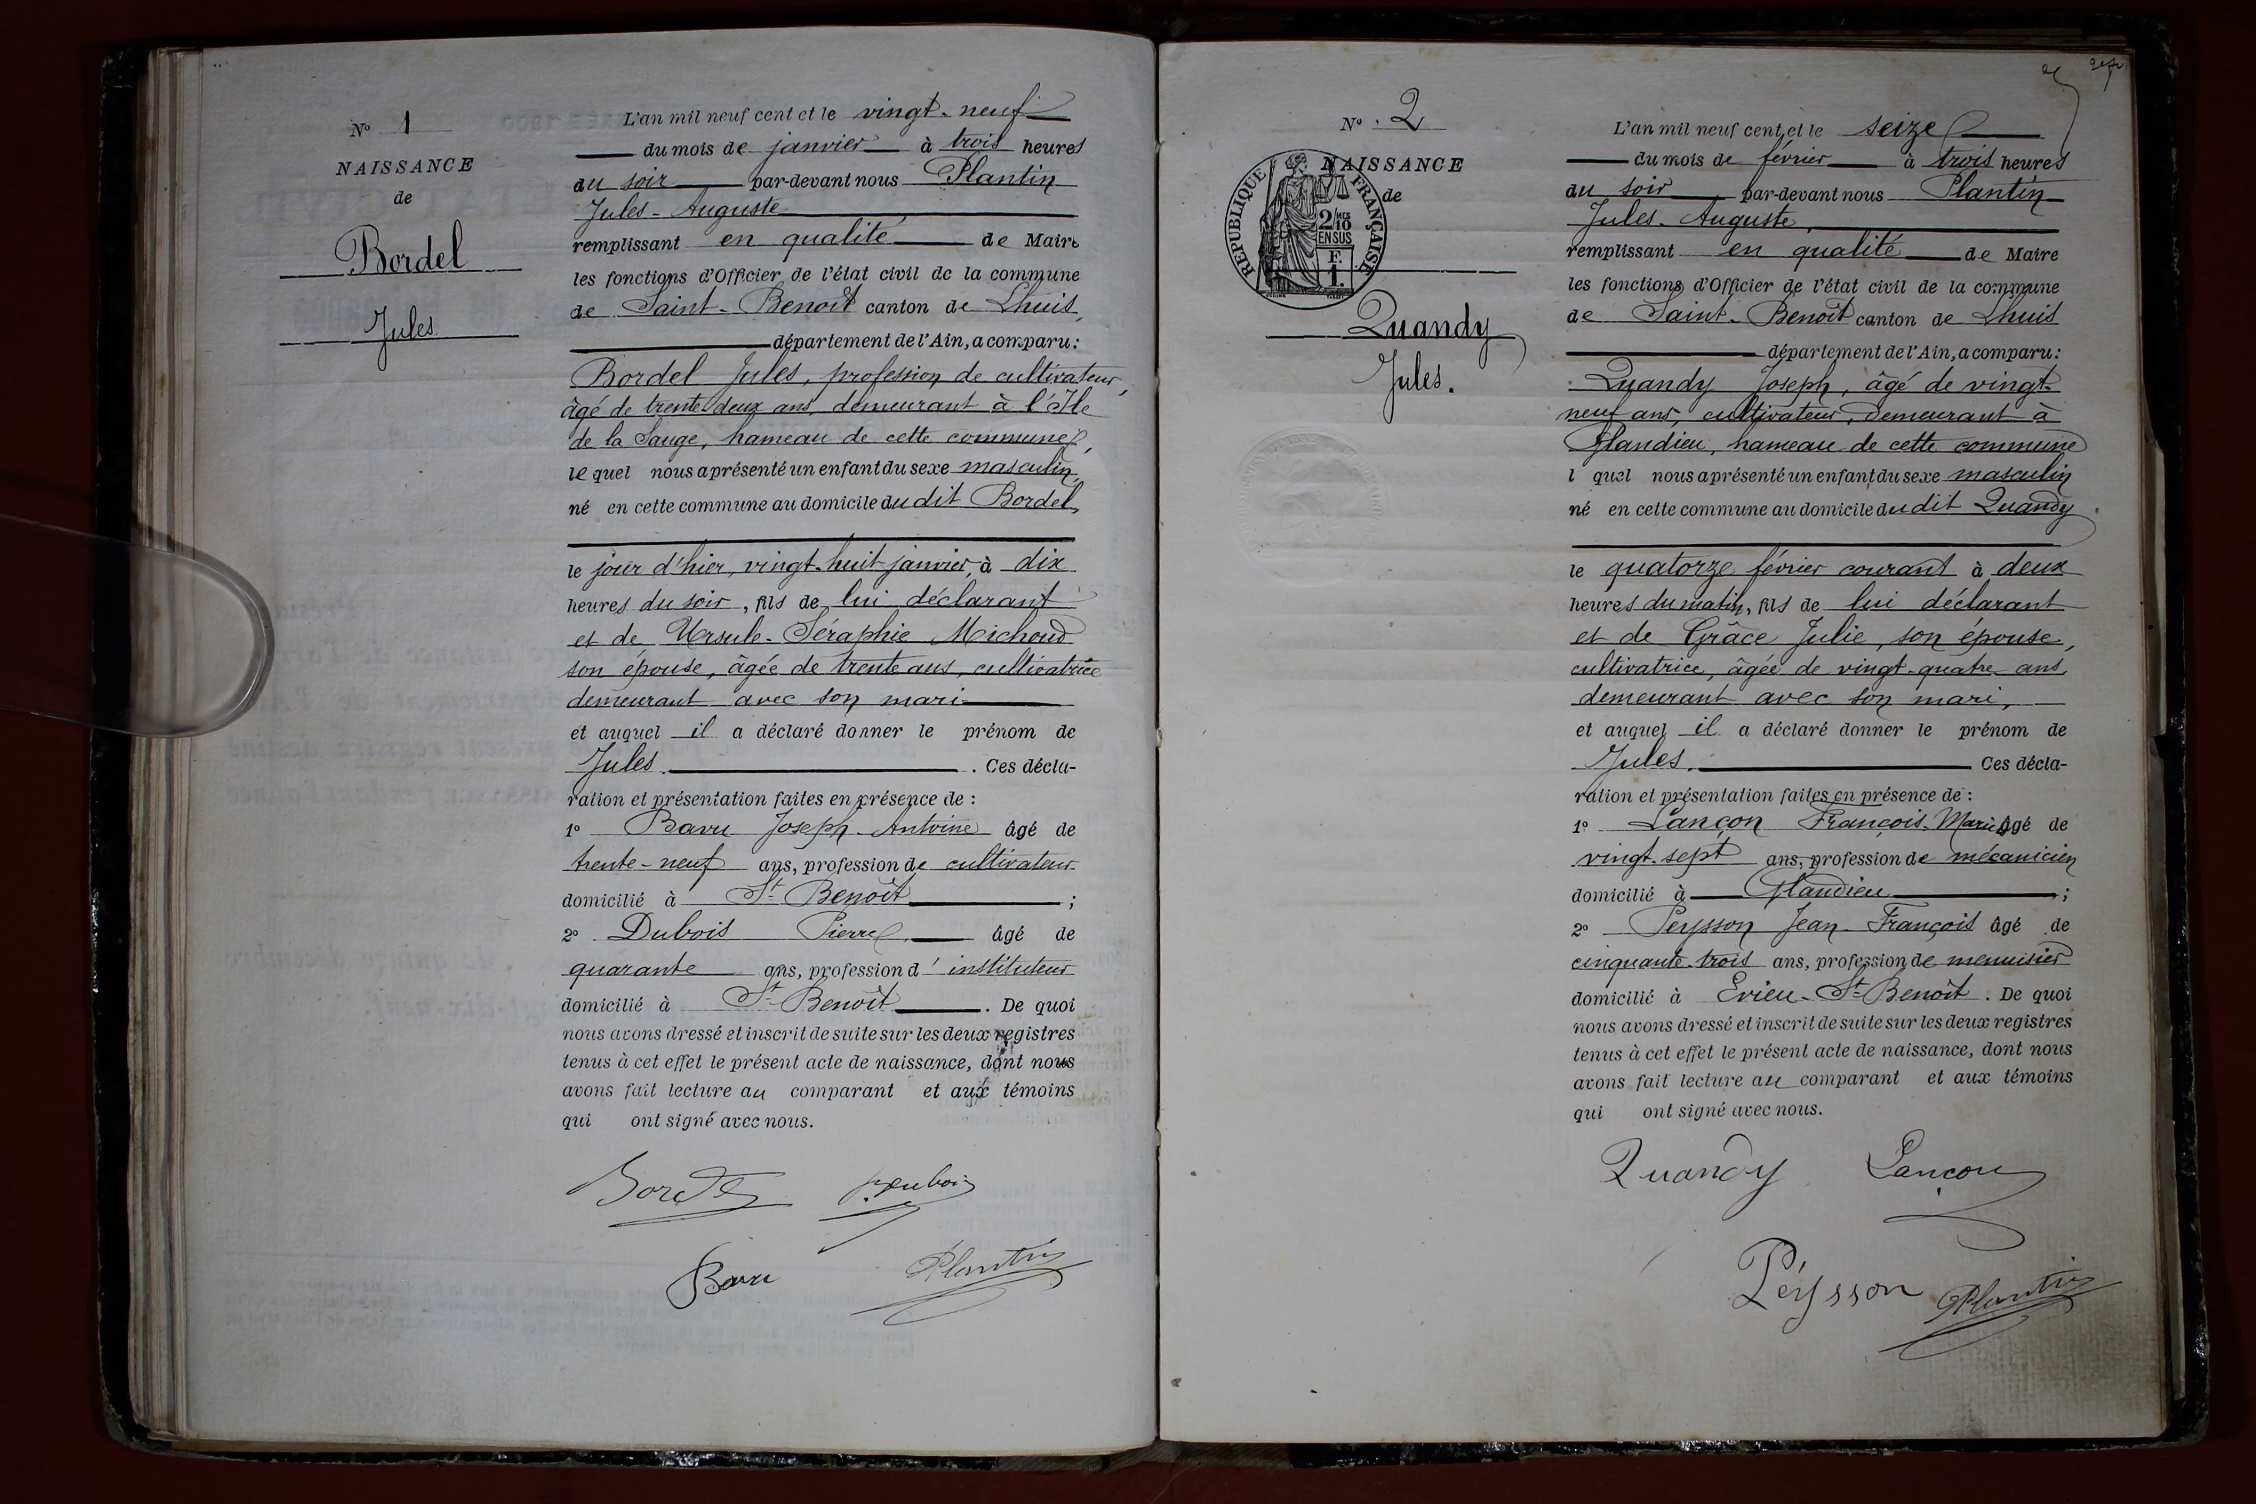 N° 1
NAISSANCE
de
Bordel
Jules
L'an mil neuf cent et le vingt-neuf
du mois de janvier à trois heures
du soir par-devant nous Plantin
Jules-Auguste
remplissant en qualité de Maire
les fonctions d'Officier de l'état civil de la commune
de Saint-Benoît canton de Lhuis,
département de l'Ain, a comparu :
Bordel Jules, profession de cultivateur,
âgé de trente-deux ans, demeurant à l'Ile
de la Sauge, hameau de cette commune,
lequel nous a présenté un enfant du sexe masculin,
né en cette commune au domicile du dit Bordel,
le jour d'hier, vingt-huit janvier, à dix
heures du soir, fils de lui déclarant
et de Ursule-Séraphie Michoud
son épouse, âgée de trente ans, cultivatrice
demeurant avec son mari
et auquel il a déclaré donner le prénom de
Jules. Ces décla-
ration et présentation faites en présence de :
1° Bavu Joseph-Antoine âgé de
trente-neuf ans, profession de cultivateur
domicilié à St Benoît ;
2° Dubois Pierre âgé de
quarante ans, profession d'instituteur
domicilié à St Benoît. De quoi
nous avons dressé et inscrit de suite sur les deux registres
tenus à cet effet le présent acte de naissance, dont nous
avons fait lecture au comparant et aux témoins
qui ont signé avec nous.
Bordel Dubois
Bavu Plantin
N° 2
NAISSANCE
de
RÉPUBLIQUE FRANÇAISE
2/10
EN SUS
F.
1.
Quandy
Jules.
L'an mil neuf cent et le seize
du mois de février à trois heures
du soir par-devant nous Plantin
Jules-Auguste,
remplissant en qualité de Maire
les fonctions d'Officier de l'état civil de la commune
de Saint-Benoît canton de Lhuis
département de l'Ain, a comparu :
Quandy Joseph, âgé de vingt-
neuf ans, cultivateur, demeurant à
Glandieu, hameau de cette commune
l quel nous a présenté un enfant du sexe masculin
né en cette commune au domicile du dit Quandy
le quatorze février courant à deux
heures du matin, fils de lui déclarant
et de Grâce Julie, son épouse,
cultivatrice, âgée de vingt-quatre ans,
demeurant avec son mari,
et auquel il a déclaré donner le prénom de
Jules. Ces décla-
ration et présentation faites en présence de :
1° Lançon François-Marie âgé de
vingt-sept ans, profession de mécanicien
domicilié à Glandieu ;
2° Peysson Jean-François âgé de
cinquante-trois ans, profession de menuisier
domicilié à Evieu-St Benoît. De quoi
nous avons dressé et inscrit de suite sur les deux registres
tenus à cet effet le présent acte de naissance, dont nous
avons fait lecture au comparant et aux témoins
qui ont signé avec nous.
Quandy Lançon
Péysson Plantin